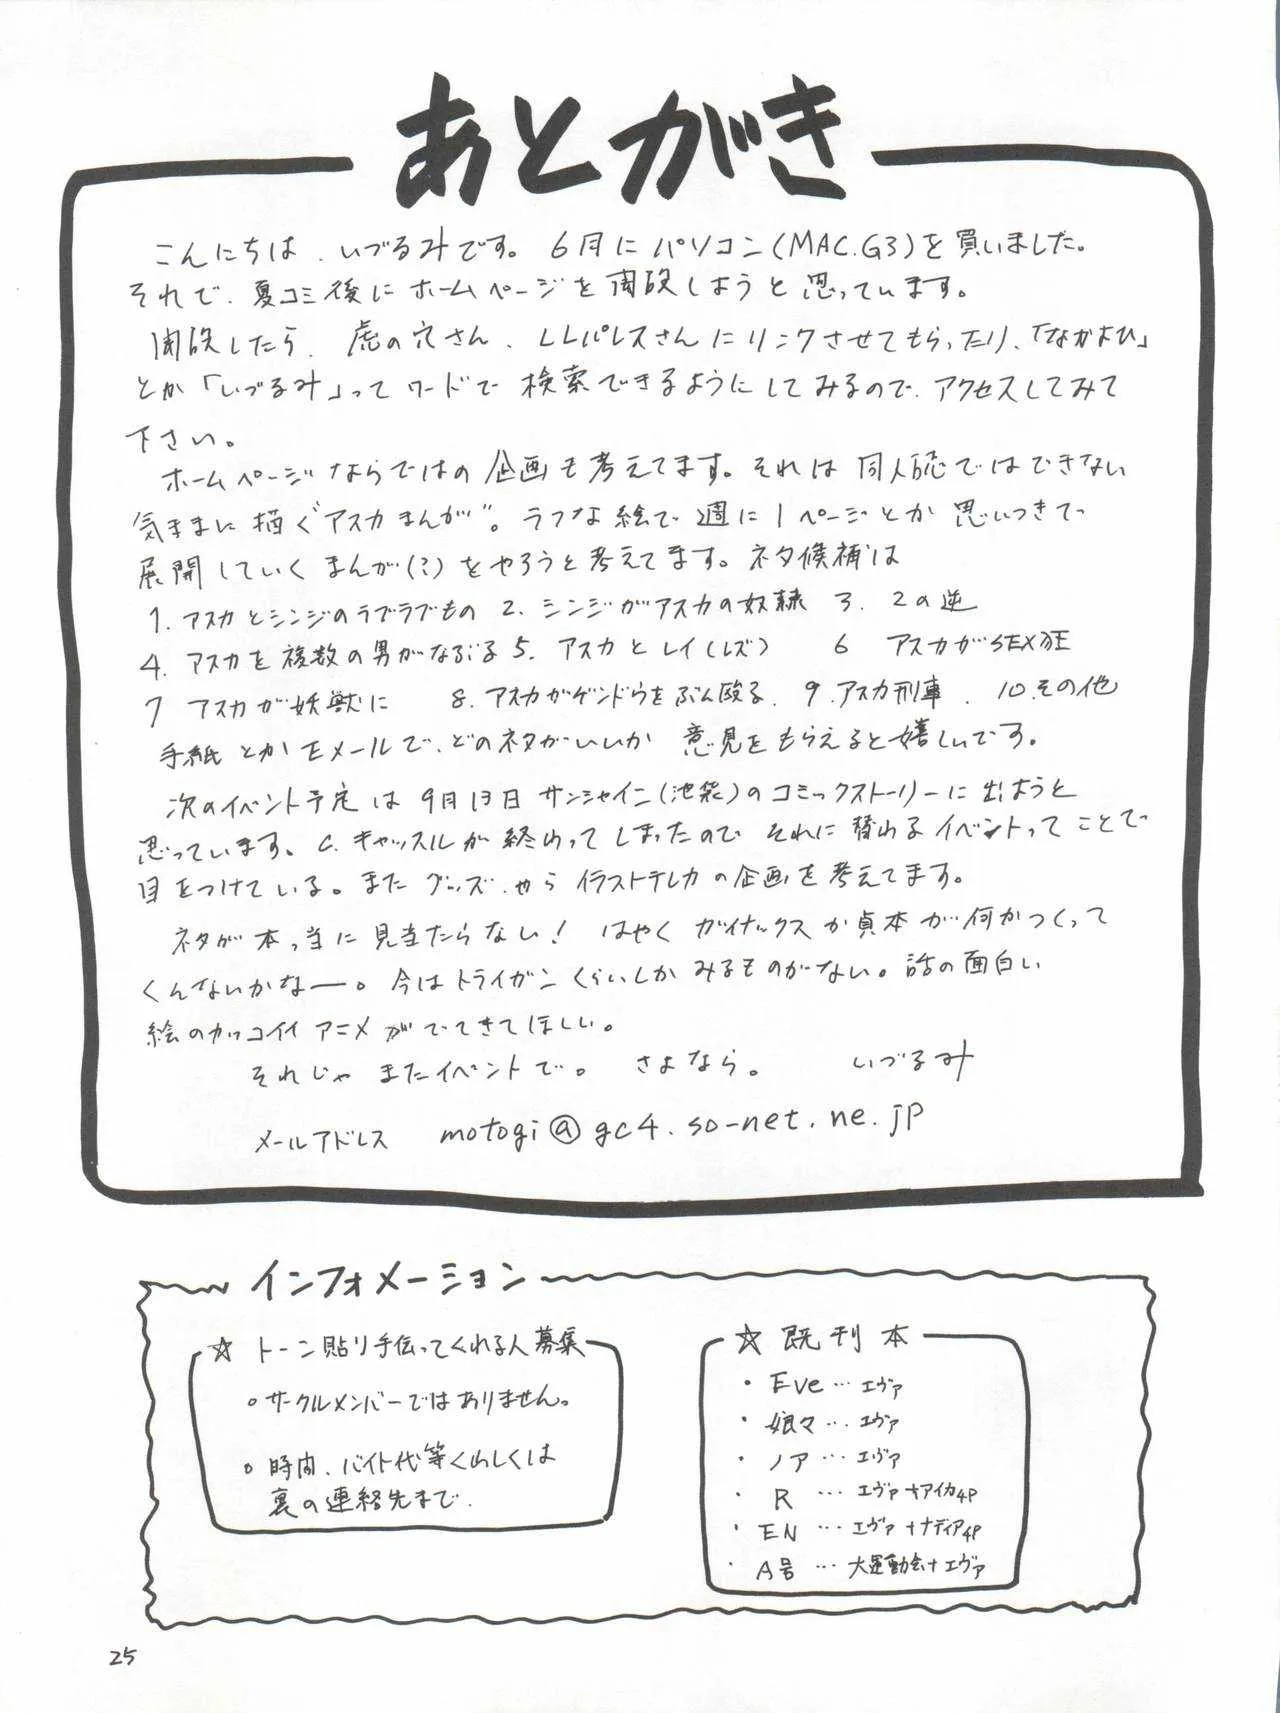 あとがき
こんにちは、いづるみです。6月にパソコン(MAC.G3)を買いました。
それで、夏コミ後にホームページを開設しようと思っています。
開設したら、虎の穴さん、LLパレスさんにリンクさせてもらったり、「ながよひ」
とか「いづるみ」ってワードで検索できるようにしてみるので、アクセスしてみて
下さい。
ホームページならではの企画も考えてます。それは同人誌ではできない
気ままに描く“アスカまんが”。ラフな絵で週に1ページとか思いつきで
展開していくまんが(?)をやろうと考えてます。ネタ候補は
1. アスカとシンジのラブラブもの 2. シンジがアスカの奴隷 3. 2の逆
4. アスカを複数の男がなぶる 5. アスカとレイ(レズ) 6 アスカがSEX狂
7 アスカが妖獣に 8. アスカがゲンドウをぶん殴る. 9. アスカ刑事. 10. その他
手紙とかEメールで、どのネタがいいか意見をもらえると嬉しいです。
次のイベント予定は9月13日サンシャイン(池袋)のコミックストーリーに出ようと
思っています。C.キャッスルが終わってしまったのでそれに替わるイベントってことで
目をつけている。またグッズ.やらイラストテレカの企画を考えてます。
ネタが本っ当に見当たらない! はやくガイナックスか貞本が何かつくって
くんないかなー。今はトライガンくらいしかみるものがない。話の面白い
絵のカッコイイアニメがでてきてほしい。
それじゃまたイベントで。 さよなら。 いづるみ
メールアドレス motogi@gc4.so-net.ne.jp
インフォメーション
☆ トーン貼り手伝ってくれる人募集
○サークルメンバーではありません。
○時間、バイト代等くわしくは
裏の連絡先まで.
☆ 既刊本
・Eve…エヴァ
・娘々…エヴァ
・ノア…エヴァ
・R …エヴァ+アイカ4P
・EN …エヴァ+ナディア4P
・A号…大運動会+エヴァ
25